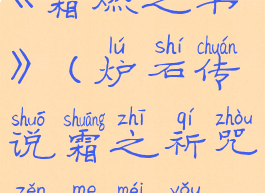 《霜燃之书
lú shí chuán
》（炉石传
shuō shuāng zhī qí zhòu
说霜之祈咒
zěn me méi yǒu